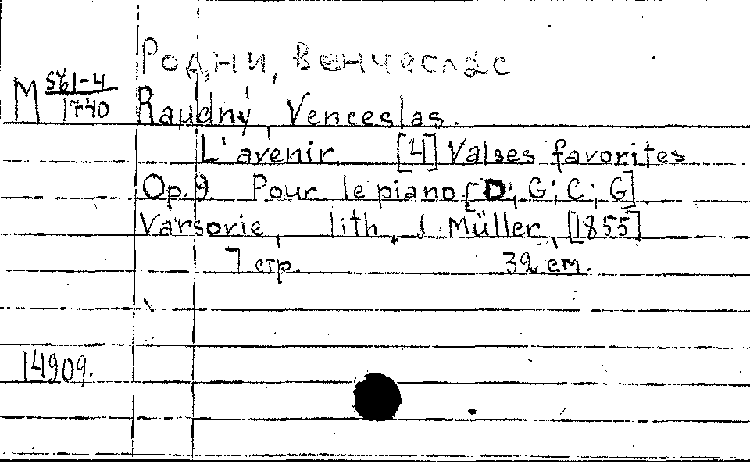 Родни, Венчеслас
М 561-4
1740
Raudný Venceslas.
L'avenir [4] Valses favorites
Op. 9 Pour le piano [D; G; C; G]
Varsovie, lith. J. Müller, [1855]
7 стр. 32 см.
14909.